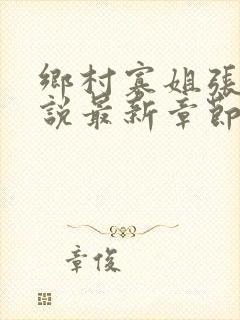 鄉村寡姐張
說最新章節
章俊